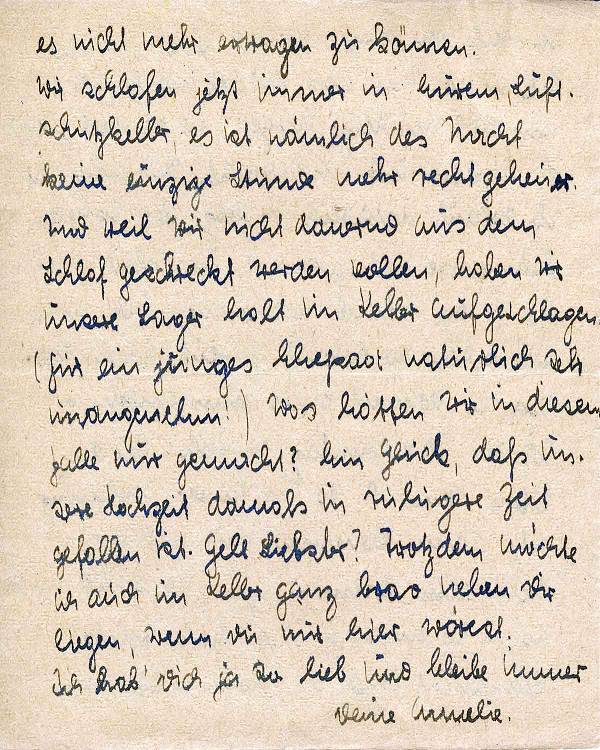 es nicht mehr ertragen zu können.
Wir schlafen jetzt immer in unserem Luft-
schutzkeller, es ist nämlich des Nacht
keine einzige Stunde mehr recht geheuer.
Und weil wir nicht dauernd aus dem
Schlaf geschreckt werden wollen, haben wir
unsere Lager halt im Keller aufgeschlagen.
(für ein junges Ehepaar natürlich sehr
unangenehm!) Was hätten wir in diesem
Falle nur gemacht? Ein Glück, daß un-
sere Hochzeit damals in ruhigere Zeit
gefallen ist. Gelt Liebster? Trotzdem möchte
ich auch im Keller ganz brav neben Dir
liegen, wenn Du nur hier wärest.
Ich hab' Dich ja so lieb und bleibe immer
Deine Annelie.